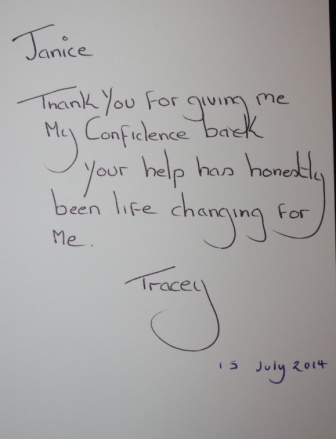 Janice
Thank You For giving me
My Confidence back
your help has honestly
been life changing for
Me.
Tracey
15 July 2014